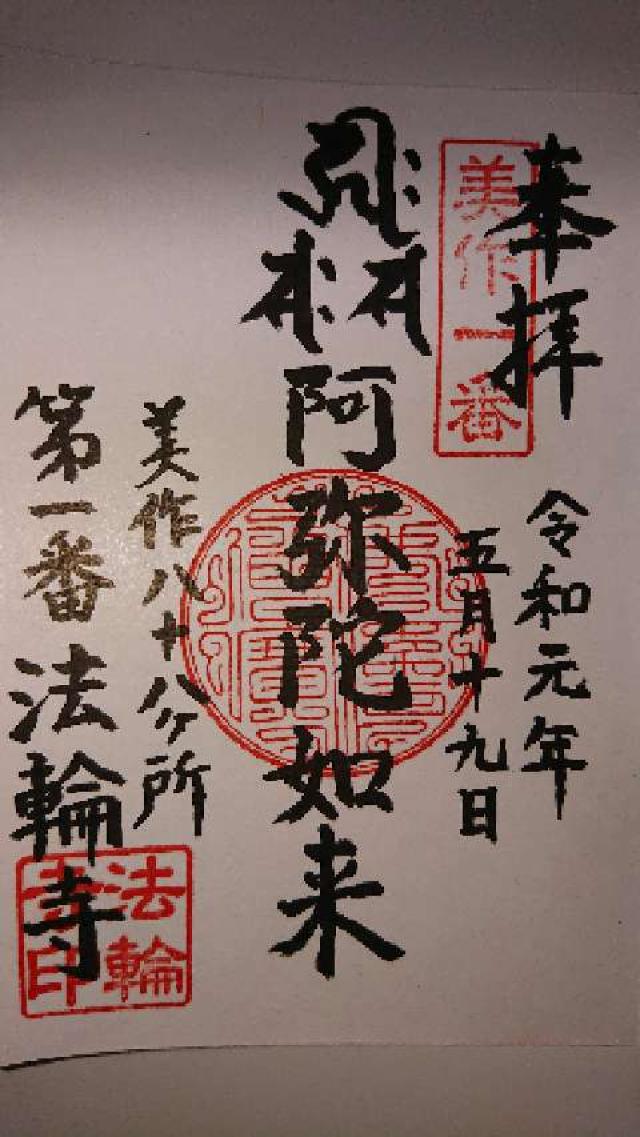 奉拝
美作一番
令和元年
五月十九日
阿弥陀如来
美作八十八ヶ所
第一番 法輪寺
法輪寺印